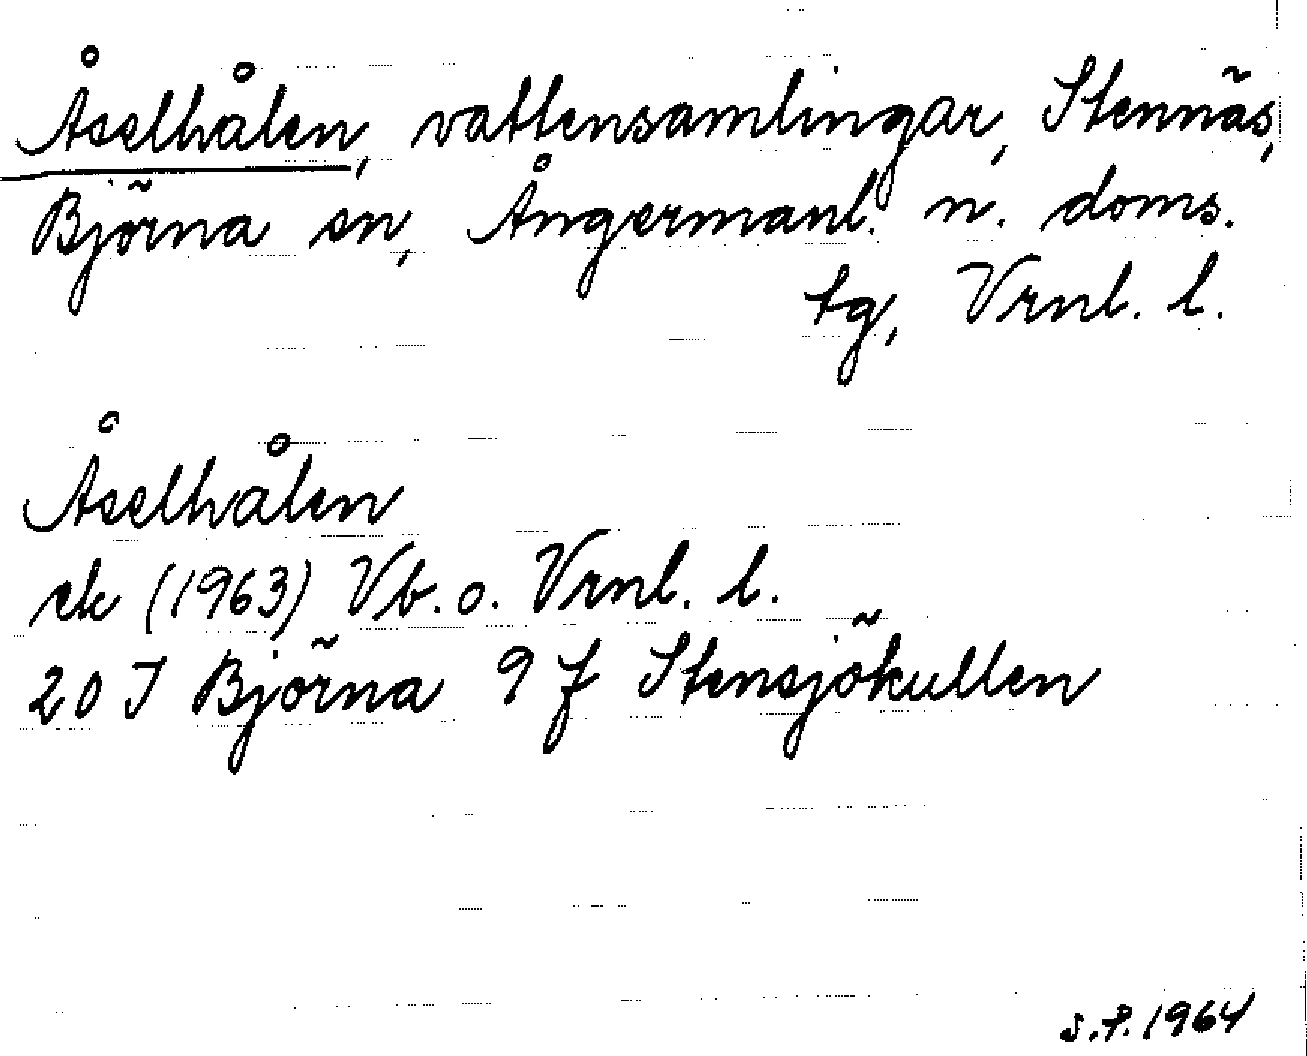 Åselhålen, vattensamlingar, Stennäs,
Björna sn, Ångermanl. n. doms.
tg, Vrnl. l.
Åselhålen
ek (1963) Vb. o. Vrnl. l.
20 J Björna 9 f Stensjökullen
s.f. 1964